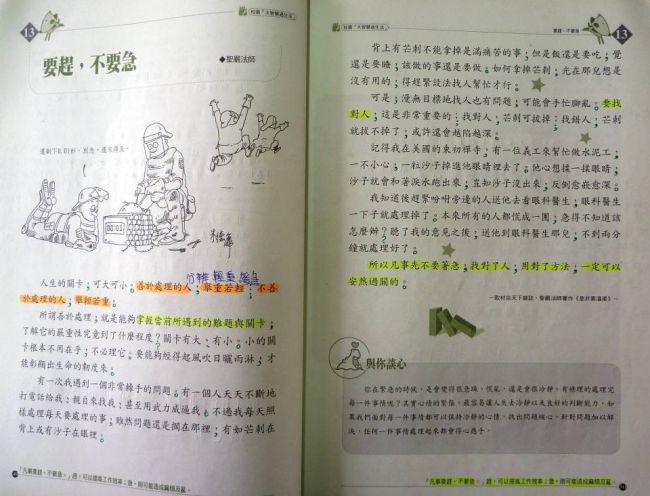 13
校園「大智慧過生活」
要趕，不要急
◆聖嚴法師
還剩下0.01秒，別急，還來得及。
分辨輕重緩急
人生的關卡；可大可小。善於處理的人；舉重若輕；不善
於處理的人；舉輕若重。
所謂善於處理；就是能夠掌握當前所遇到的難題與關卡；
了解它的嚴重性究竟到了什麼程度？關卡有大、有小。小的關
卡根本不用在乎；不必理它。要能夠經得起風吹日曬雨淋；才
能彰顯出生命的韌度來。
有一次我遇到一個非常棘手的問題。有一個人天天不斷地
打電話給我、親自來找我、甚至用武力威逼我。不過我每天照
樣處理每天要處理的事；雖然問題還是擱在那裡；有如芒刺在
背上或有沙子在眼裡。
「凡事要趕，不要急。」趕，可以提高工作效率；急，則可能造成麻煩及亂。
校園「大智慧過生活」
要趕，不要急
13
背上有芒刺不能拿掉是滿痛苦的事；但是飯還是要吃；覺
還是要睡；該做的事還是要做。如何拿掉芒刺；光在那兒想是
沒有用的；得趕緊設法找人幫忙才行。
可是；漫無目標地找人也有問題；可能會手忙腳亂。要找
對人；這是非常重要的；找對人；芒刺可拔掉；找錯人；芒刺
就拔不掉了；或許還會越陷越深。
記得我在美國的東初禪寺；有一位義工來幫忙做水泥工；
一不小心；一粒沙子掉進他眼睛裡去了。他心想揉一揉眼睛；
沙子就會和著淚水跑出來；豈知沙子沒出來；反倒愈嵌愈深。
我知道後趕緊吩咐旁邊的人送他去看眼科醫生；眼科醫生
一下子就處理掉了。本來所有的人都慌成一團；急得不知道該
怎麼辦？聽了我的意見之後；送他到眼科醫生那兒；不到兩分
鐘就處理好了。
所以凡事先不要著急；找對了人；用對了方法；一定可以
安然過關的。
～取材自天下雜誌．聖嚴法師著作《是非要溫柔》～
與你談心
你在緊急的時候，是會變得很急躁、慌亂，還是會很冷靜，有條理的處理完
每一件事情呢？其實心情的緊張，最容易讓人失去冷靜以及良好的判斷能力，如
果我們面對每一件事情都可以保持冷靜的心情，找出問題核心，針對問題加以解
決，任何一件事情處理起來都會得心應手。
「凡事要趕，不要急。」趕，可以提高工作效率；急，則可能造成麻煩及亂。